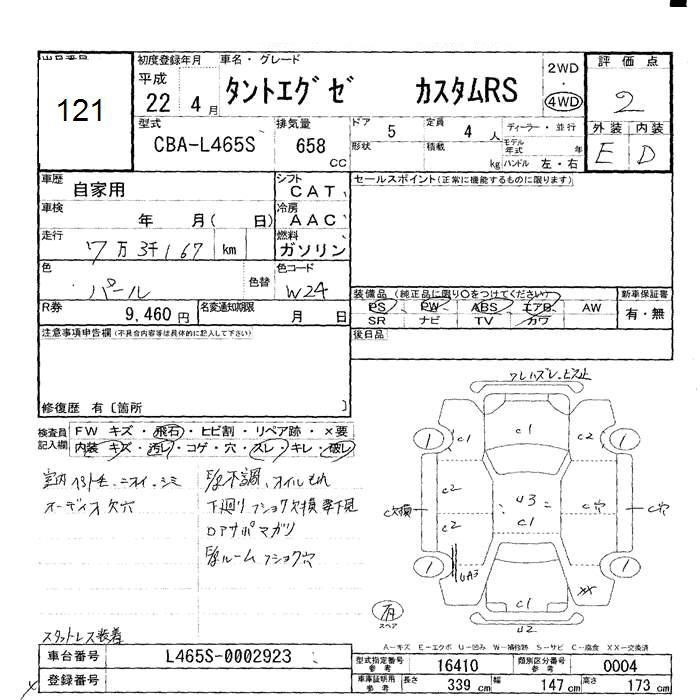 出品番号
121
初度登録年月
平成
22 4 月
車名・グレード
タントエグゼ カスタムRS
2WD
・
4WD
評価点
2
外装 内装
E D
型式
CBA-L465S
排気量
658 CC
ドア 5
定員 4 人
形状
積載 kg
ディーラー・並行
モデル年式 年
ハンドル 左・右
車歴
自家用
シフト
CAT
セールスポイント(正常に機能するものに限ります)
車検
年 月( 日)
冷房
AAC
走行
7万3千167 km
燃料
ガソリン
色
パール
色替
色コード
W24
装備品(純正品に限り○をつけてください)
PS PW ABS エアB AW
SR ナビ TV カワ
新車保証書
有・無
R券
9,460 円
名変通知期限
月 日
後日品
注意事項申告欄(不具合内容等は具体的に記入して下さい)
修復歴 有〔箇所 〕
検査員記入欄
FW キズ・飛石・ヒビ割・リペア跡・×要
内装 キズ・汚レ・コゲ・穴・スレ・キレ・破レ
オーディオ欠穴
不調、オイルもれ
下廻り
スタットレス装着
C1
C1
C2
C2
C2
C欠損
U3
C1
C穴
C穴
UA3
XX
C1
U2
1
1
1
1
有
スペア
A-キズ E-エクボ U-凹み W-補修跡 S-サビ C-腐食 XX-交換済
車台番号
L465S-0002923
登録番号
型式指定番号参考
16410
類別区分番号参考
0004
車庫証明用参考
長さ 339 cm
幅 147 cm
高さ 173 cm